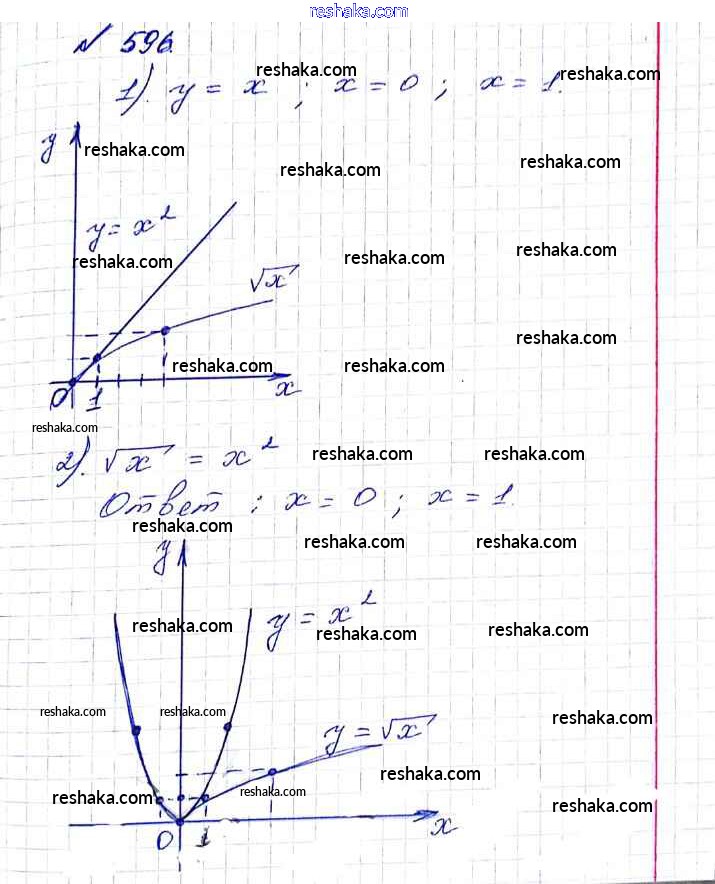 reshaka.com
№ 596.
reshaka.com
1). y = x ; x = 0 ; x = 1.
reshaka.com
y
reshaka.com
reshaka.com
reshaka.com
y = x²
reshaka.com
reshaka.com
reshaka.com
√x
reshaka.com
reshaka.com
reshaka.com
reshaka.com
0 1 x
reshaka.com
2). √x = x²
reshaka.com
reshaka.com
Ответ : x = 0 ; x = 1.
reshaka.com
reshaka.com
reshaka.com
y
y = x²
reshaka.com
reshaka.com
reshaka.com
reshaka.com
reshaka.com
reshaka.com
y = √x
reshaka.com
reshaka.com
reshaka.com
reshaka.com
0 1 x